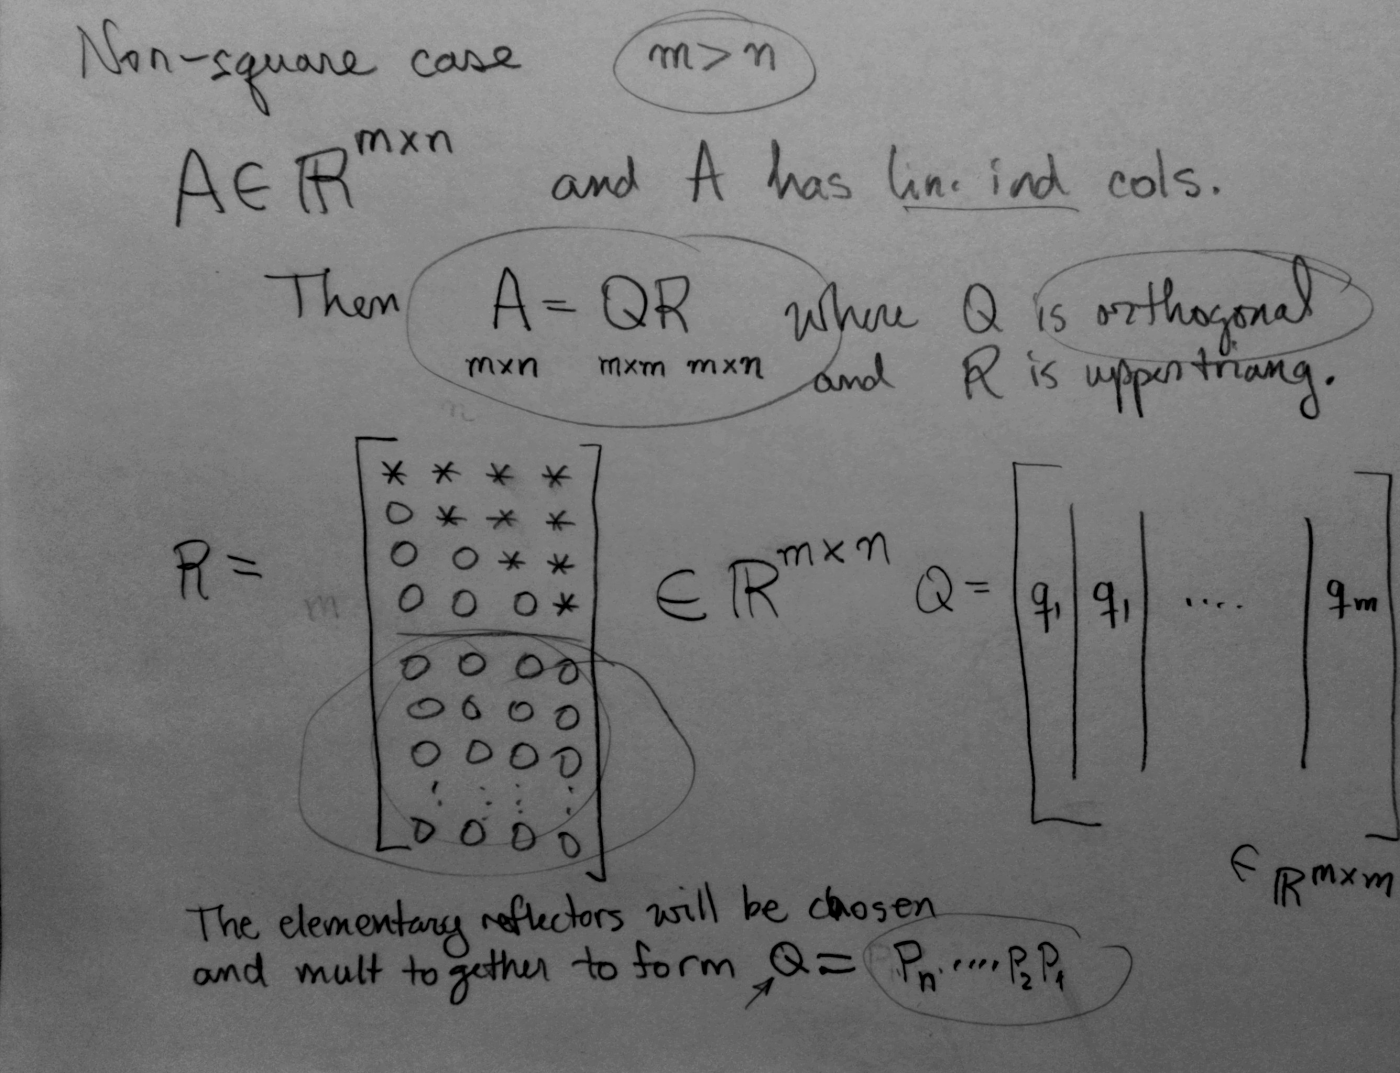 Non-square case m > n
A ∈ ℝ^{m×n} and A has lin. ind cols.
Then A = QR where Q is orthogonal
m×n m×m m×n and R is upper triang.
n
* * * *
0 * * *
0 0 * *
R = m 0 0 0 * ∈ ℝ^{m×n} Q = [ q₁ | q₁ | .... | qₘ ]
0 0 0 0
0 0 0 0
0 0 0 0
⋮ ⋮ ⋮ ⋮
0 0 0 0
∈ ℝ^{m×m}
The elementary reflectors will be chosen
and mult together to form Q = Pₙ.....P₂P₁